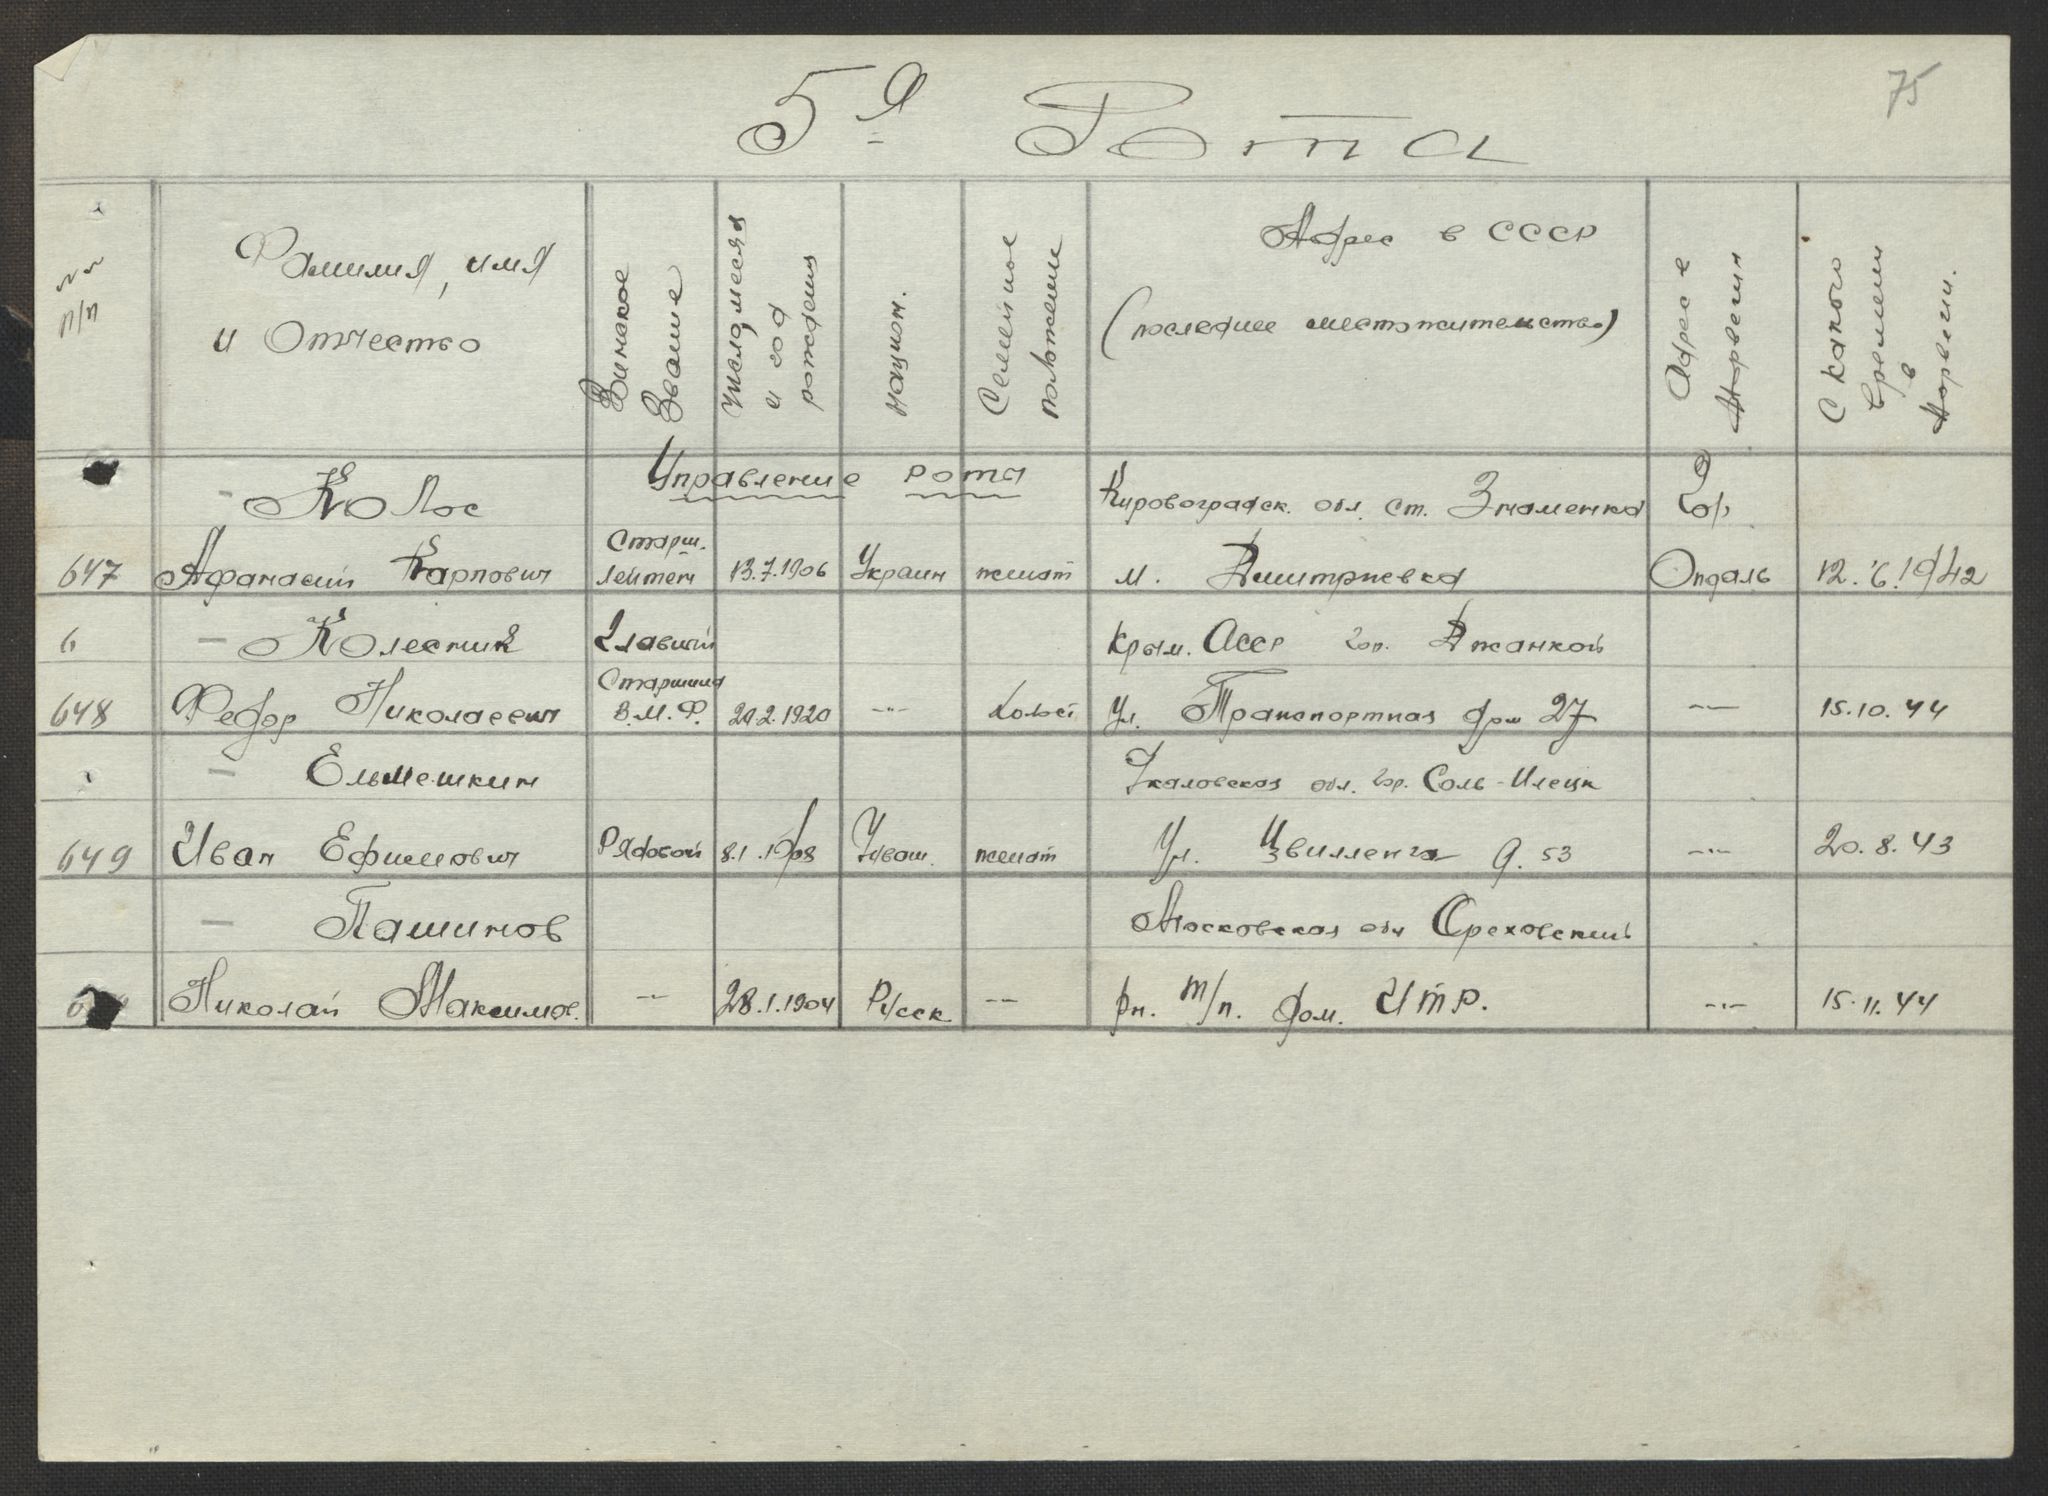 75
5я Рота
№№ п/п
Фамилия, имя и Отчество
Воинское Звание
Число, месяц и год рождения
Национ.
Семейное положение
Адрес в СССР (последнее местожительство)
Адрес в Норвегии
С какого времени в Норвегии.
Управление роты
Колос Кировоградск. обл. ст. Знаменка гор.
647 Афанасий Карпович Старш. Лейтен 13.7.1906 Украин женат м. Дмитриевка Опдаль 12.6.1942
Колесник Главный Крым. АССР гор. Джанкой
648 Федор Николаевич Старшина В.М.Ф. 20.2.1920 -"- Холост ул. Транспортная дом 27 -"- 15.10.44
Ельмешкин Чкаловская обл. гор. Соль-Илецк
649 Иван Ефимович Рядовой 8.1.1908 Чуваш. женат Ул. Цвиллинга д. 53 -"- 20.8.43
Пашинов Московская обл Ореховский
Николай Максимов. -"- 28.1.1904 Русск -"- рн. т/п. дом. ИТР. -"- 15.11.44